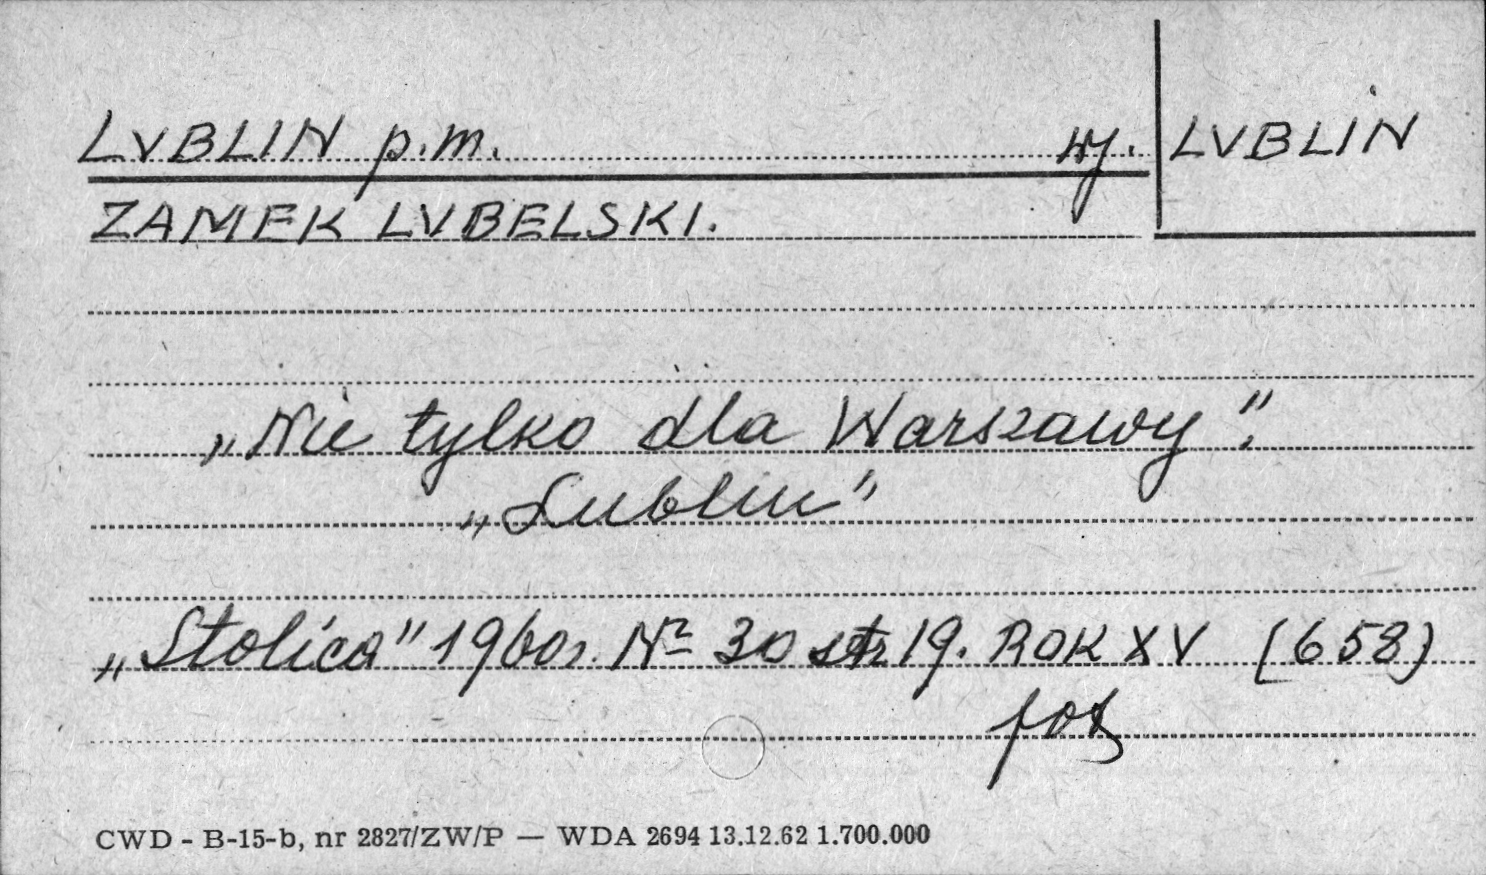 LVBLIN p.m. wj. LVBLIN
ZAMEK LVBELSKI.
„Nie tylko dla Warszawy”.
„Lublin”
„Stolica” 1960r. Nr 30 str 19. ROK XV (658)
fot
CWD - B-15-b, nr 2827/ZW/P — WDA 2694 13.12.62 1.700.000